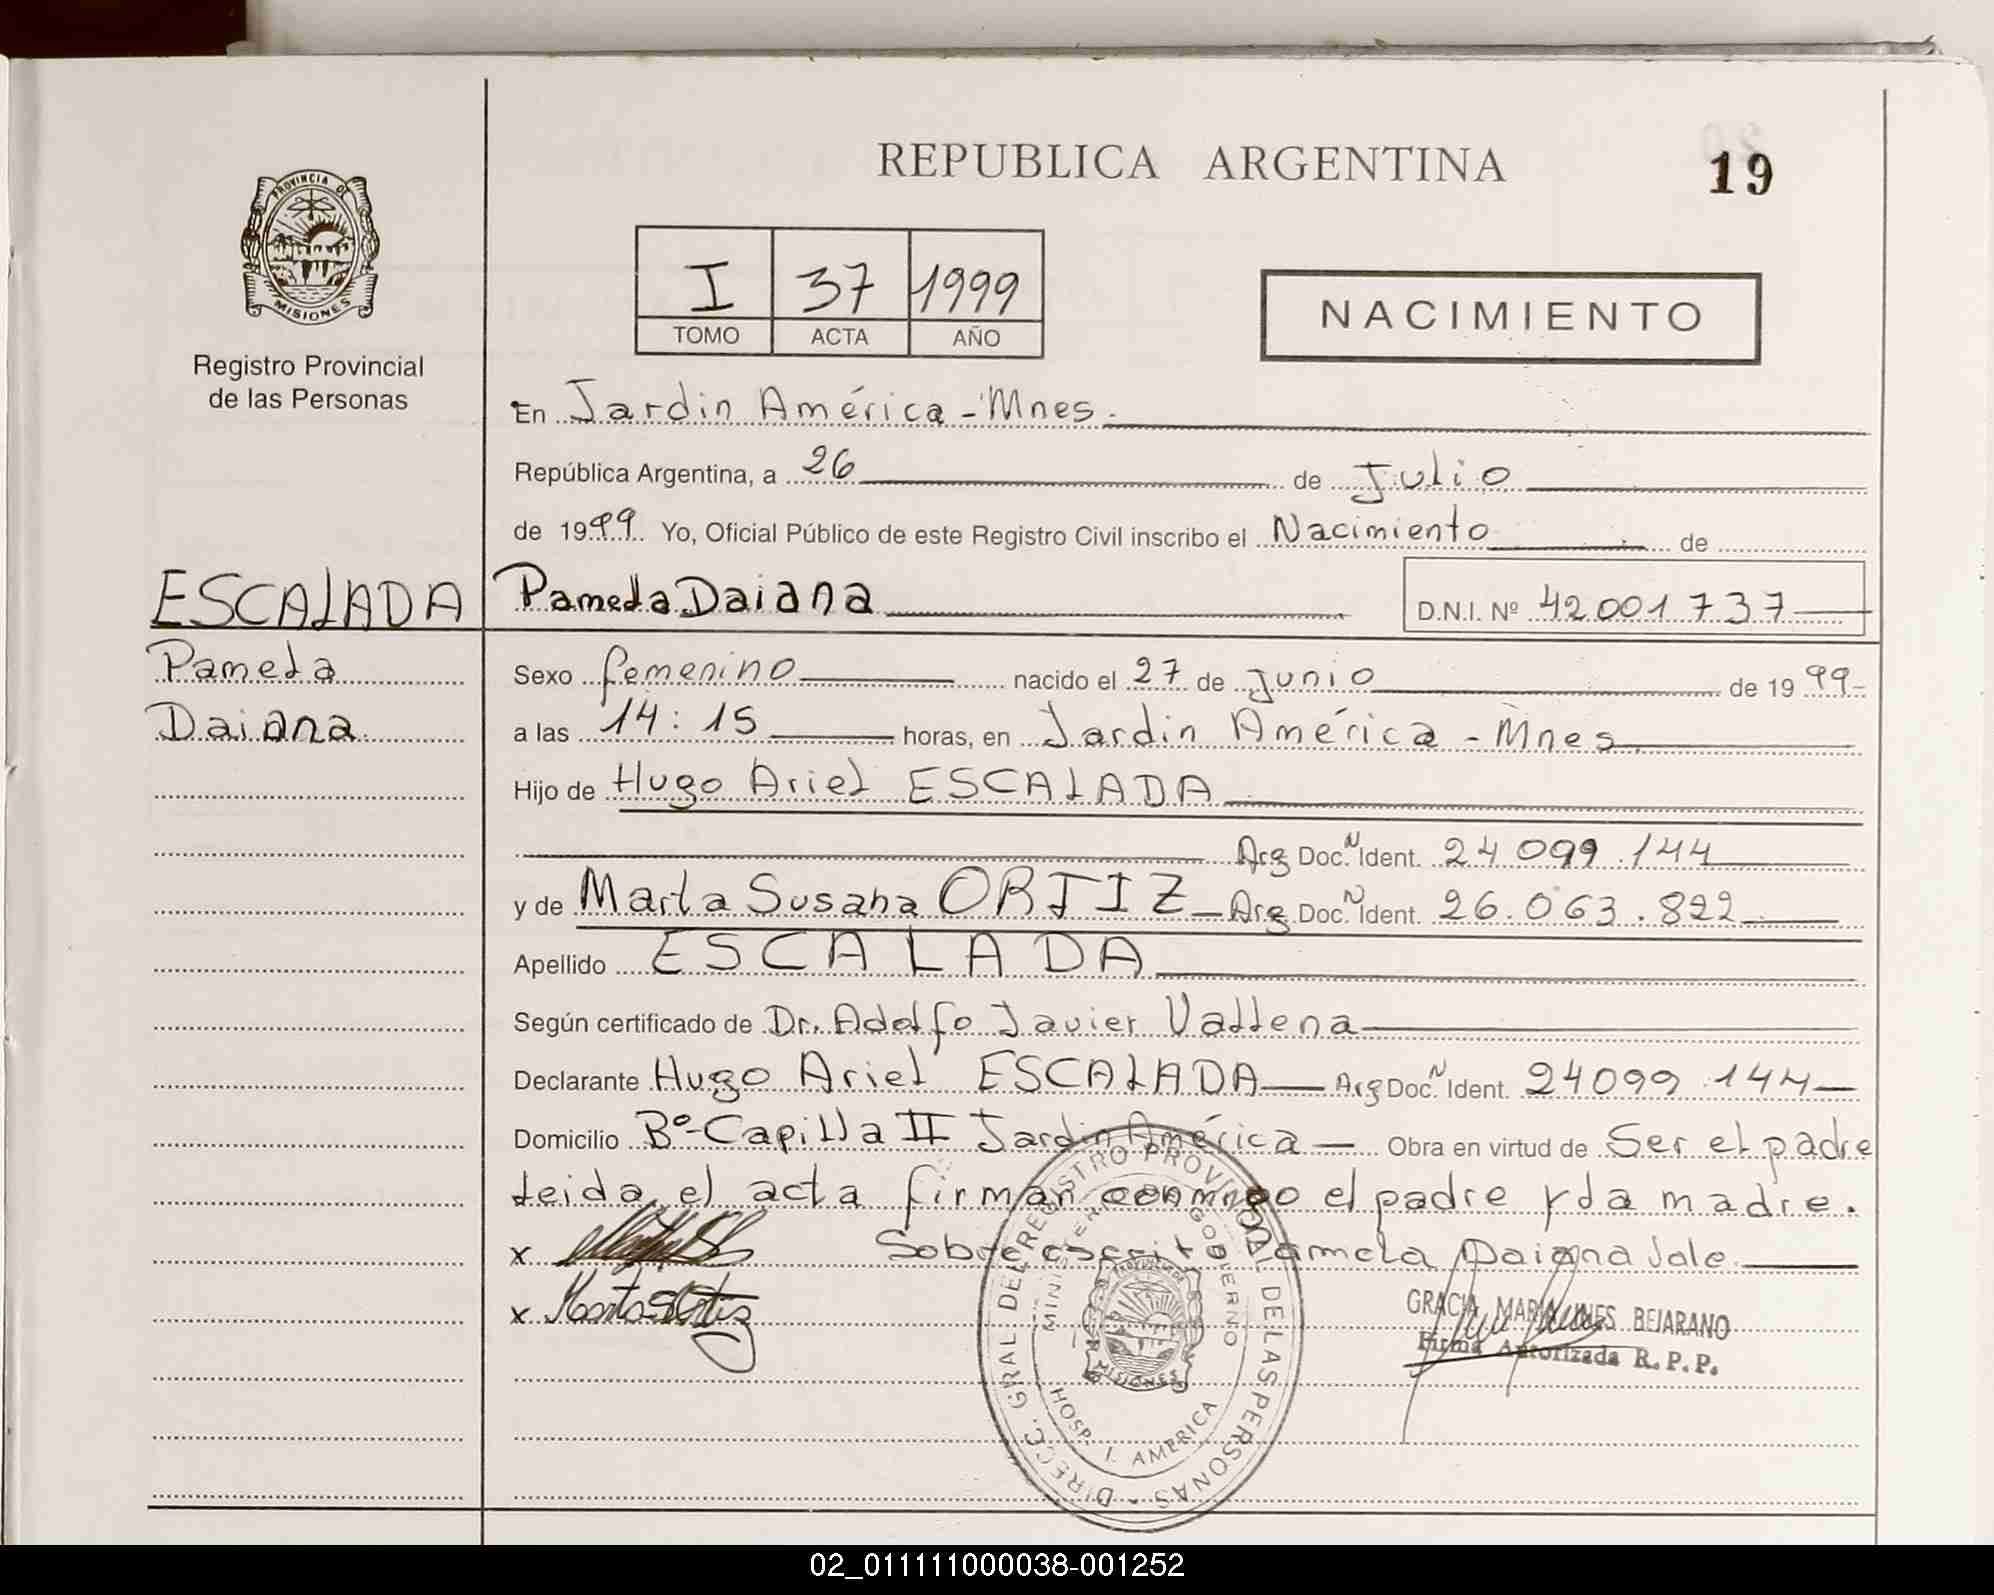 REPUBLICA ARGENTINA
19
PROVINCIA DE
MISIONES
Registro Provincial
de las Personas
I 37 1999
TOMO ACTA AÑO
NACIMIENTO
En Jardin América - Mnes.
República Argentina, a 26 de Julio
de 1999 Yo, Oficial Público de este Registro Civil inscribo el Nacimiento de
ESCALADA Pamela Daiana D.N.I. Nº 42001737
Pamela
Daiana
Sexo femenino nacido el 27 de Junio de 1999-
a las 14:15 horas, en Jardin América - Mnes
Hijo de Hugo Ariel ESCALADA
Arg Doc. N Ident. 24 099 144
y de Marta Susana ORTIZ - Arg Doc. N Ident. 26.063.822
Apellido ESCALADA
Según certificado de Dr. Adolfo Javier Vallena
Declarante Hugo Ariel ESCALADA Arg Doc. N Ident. 24099 144
Domicilio Bº-Capilla II Jardin América - Obra en virtud de Ser el padre
leida el acta firman conmigo el padre y la madre.
x Sobre escrito Pamela Daiana Vale
x Marta S Ortiz
GRACIA MARIA INES BEJARANO
Firma Autorizada R.P.P.
DIRECC. GRAL DEL REGISTRO PROVINCIAL DE LAS PERSONAS
MINISTERIO DE GOBIERNO
PROVINCIA DE
MISIONES
HOSP. I. AMERICA
02_011111000038-001252